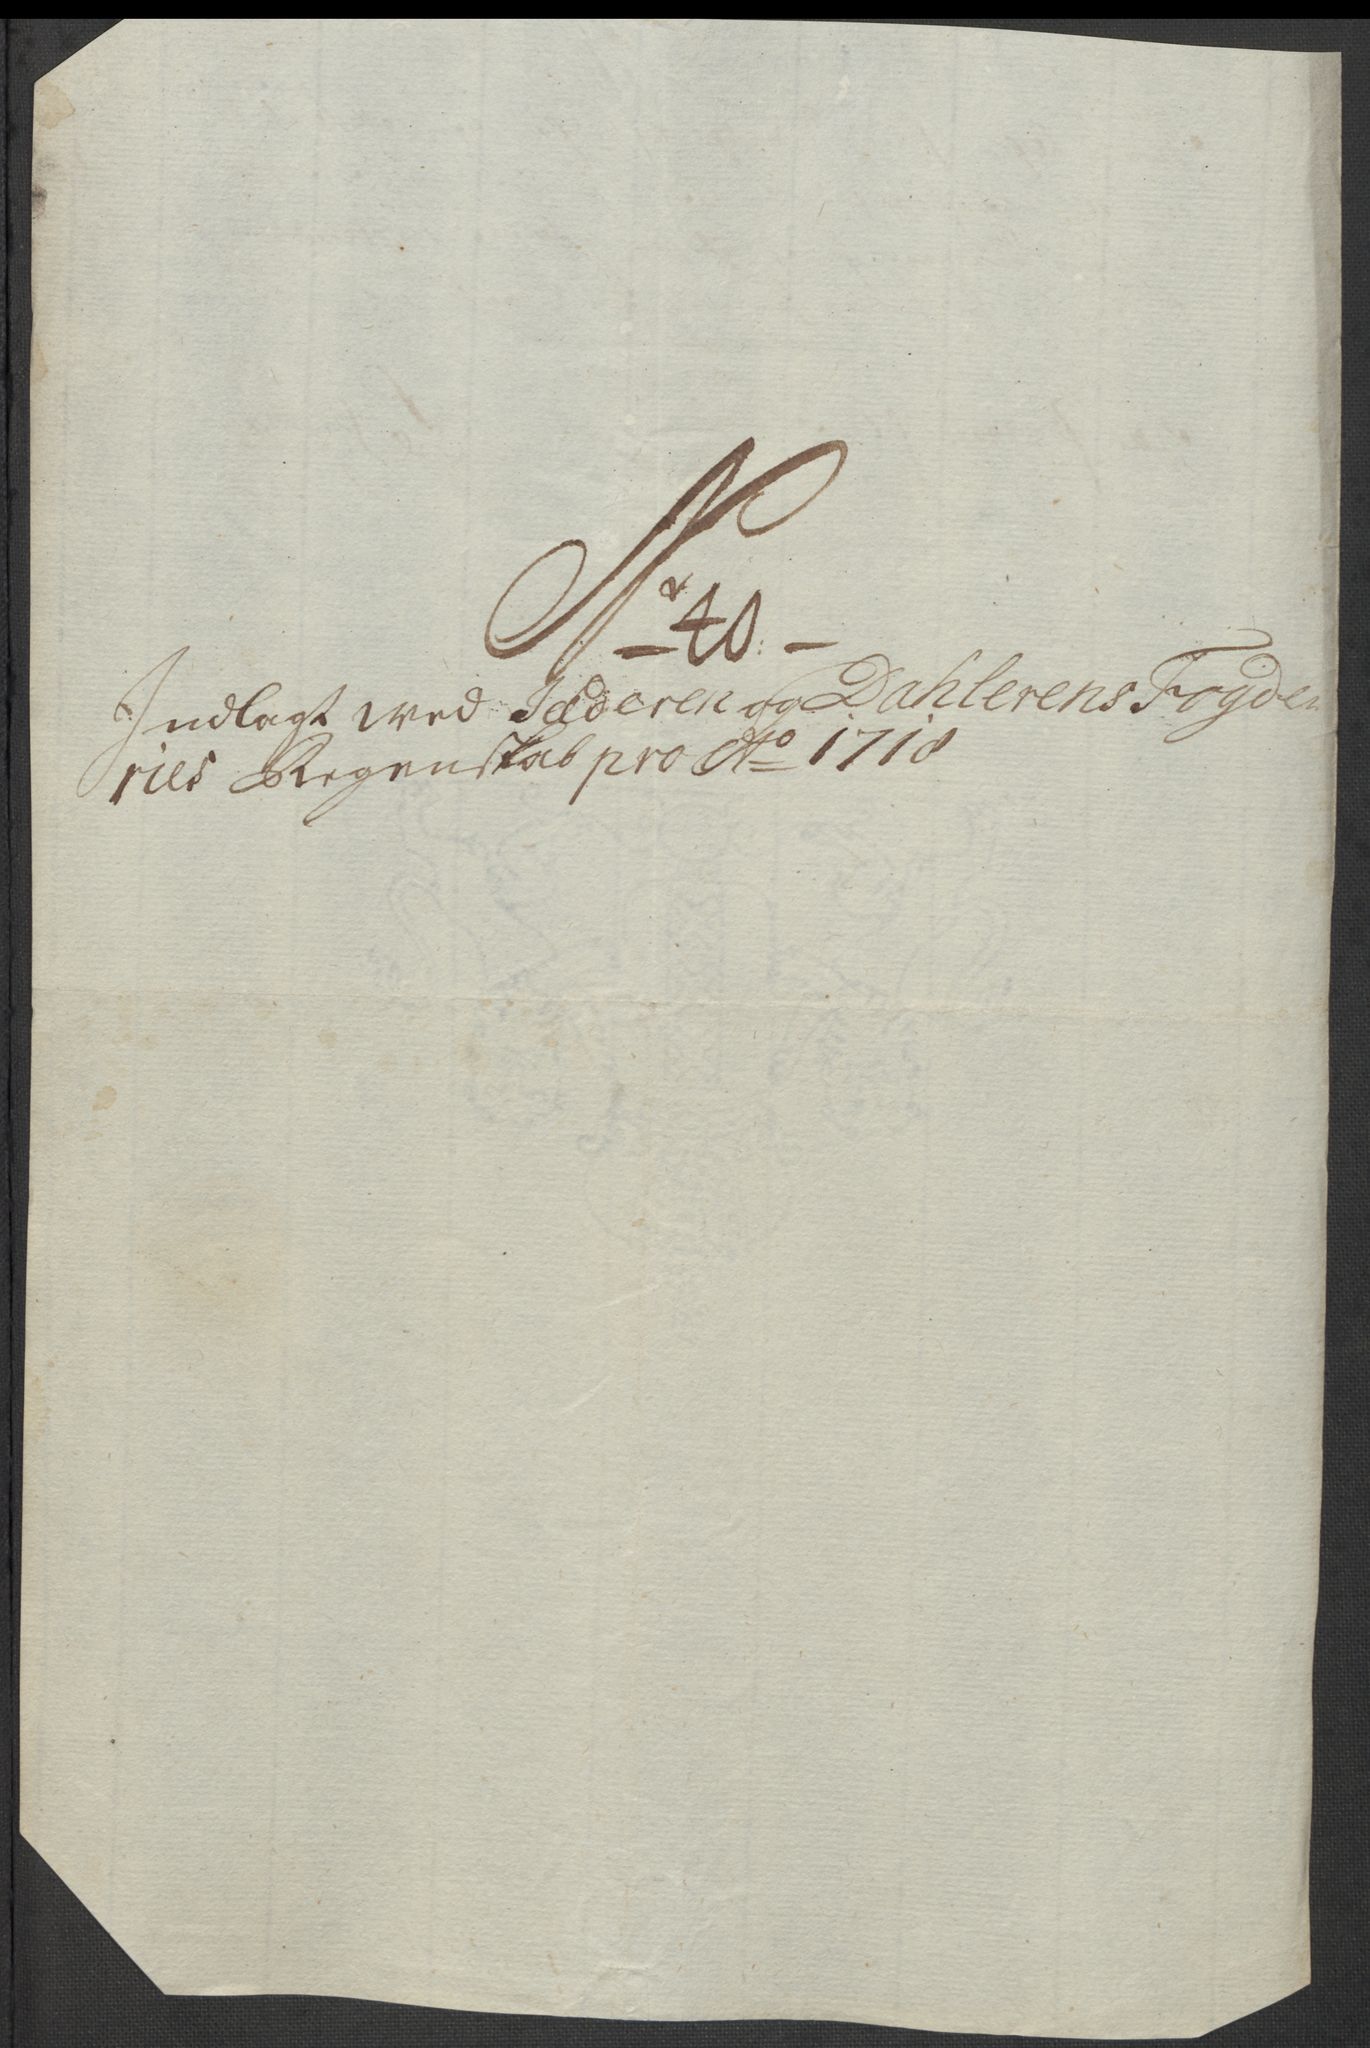 Nr 40. -
Indlagt wed Jæderen og Dahlerens Fogde
ries Regenskab pro Ao 1718